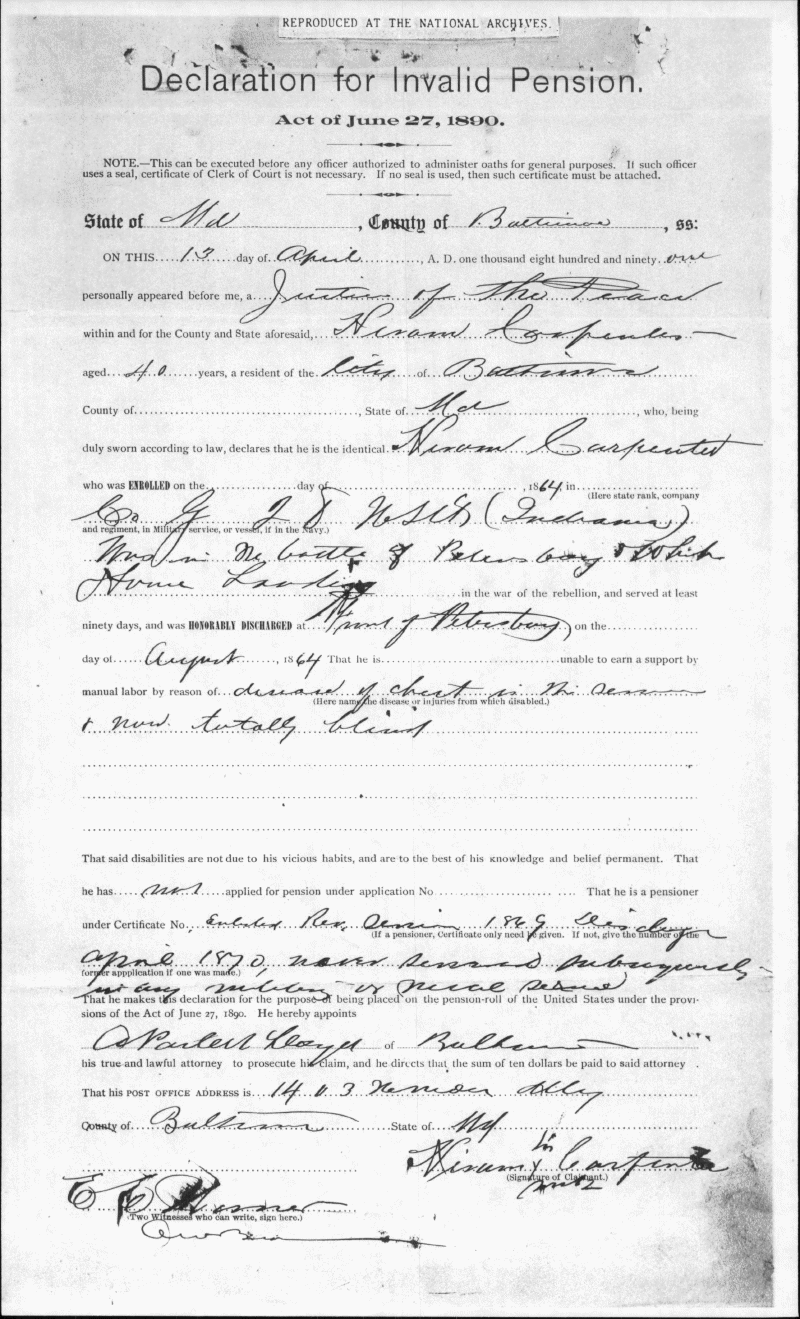 REPRODUCED AT THE NATIONAL ARCHIVES.
Declaration for Invalid Pension.
Act of June 27, 1890.
NOTE.—This can be executed before any officer authorized to administer oaths for general purposes. If such officer
uses a seal, certificate of Clerk of Court is not necessary. If no seal is used, then such certificate must be attached.
State of Md, County of Baltimore, ss:
ON THIS 13 day of April, A. D. one thousand eight hundred and ninety one
personally appeared before me, a Justice of the Peace
within and for the County and State aforesaid, Hiram Carpenter
aged 40 years, a resident of the City of Baltimore
County of, State of Md, who, being
duly sworn according to law, declares that he is the identical Hiram Carpenter
who was ENROLLED on the day of, 1864 in
(Here state rank, company
Co G (Indiana)
and regiment, in Military service, or vessel, if in the Navy.)
Was in the battle of Petersburg & White
House Landing in the war of the rebellion, and served at least
ninety days, and was HONORABLY DISCHARGED at Front of Petersburg on the
day of August, 1864 That he is unable to earn a support by
manual labor by reason of disease of chest in the service
(Here name the disease or injuries from which disabled.)
& now totally blind
That said disabilities are not due to his vicious habits, and are to the best of his knowledge and belief permanent. That
he has not applied for pension under application No That he is a pensioner
under Certificate No. Enlisted Rev. Service 1869 Discharge
(If a pensioner, Certificate only need be given. If not, give the number of the
April 1870, never served subsequently
former appplication if one was made.)
in any military or Naval service
That he makes this declaration for the purpose of being placed on the pension-roll of the United States under the provi-
sions of the Act of June 27, 1890. He hereby appoints
Lloyd of Baltimore
his true and lawful attorney to prosecute his claim, and he directs that the sum of ten dollars be paid to said attorney.
That his POST OFFICE ADDRESS is 1403 Alley
County of Baltimore State of Md
Hiram his x Carpenter
(Signature of Claimant.)
mark
E
(Two Witnesses who can write, sign here.)